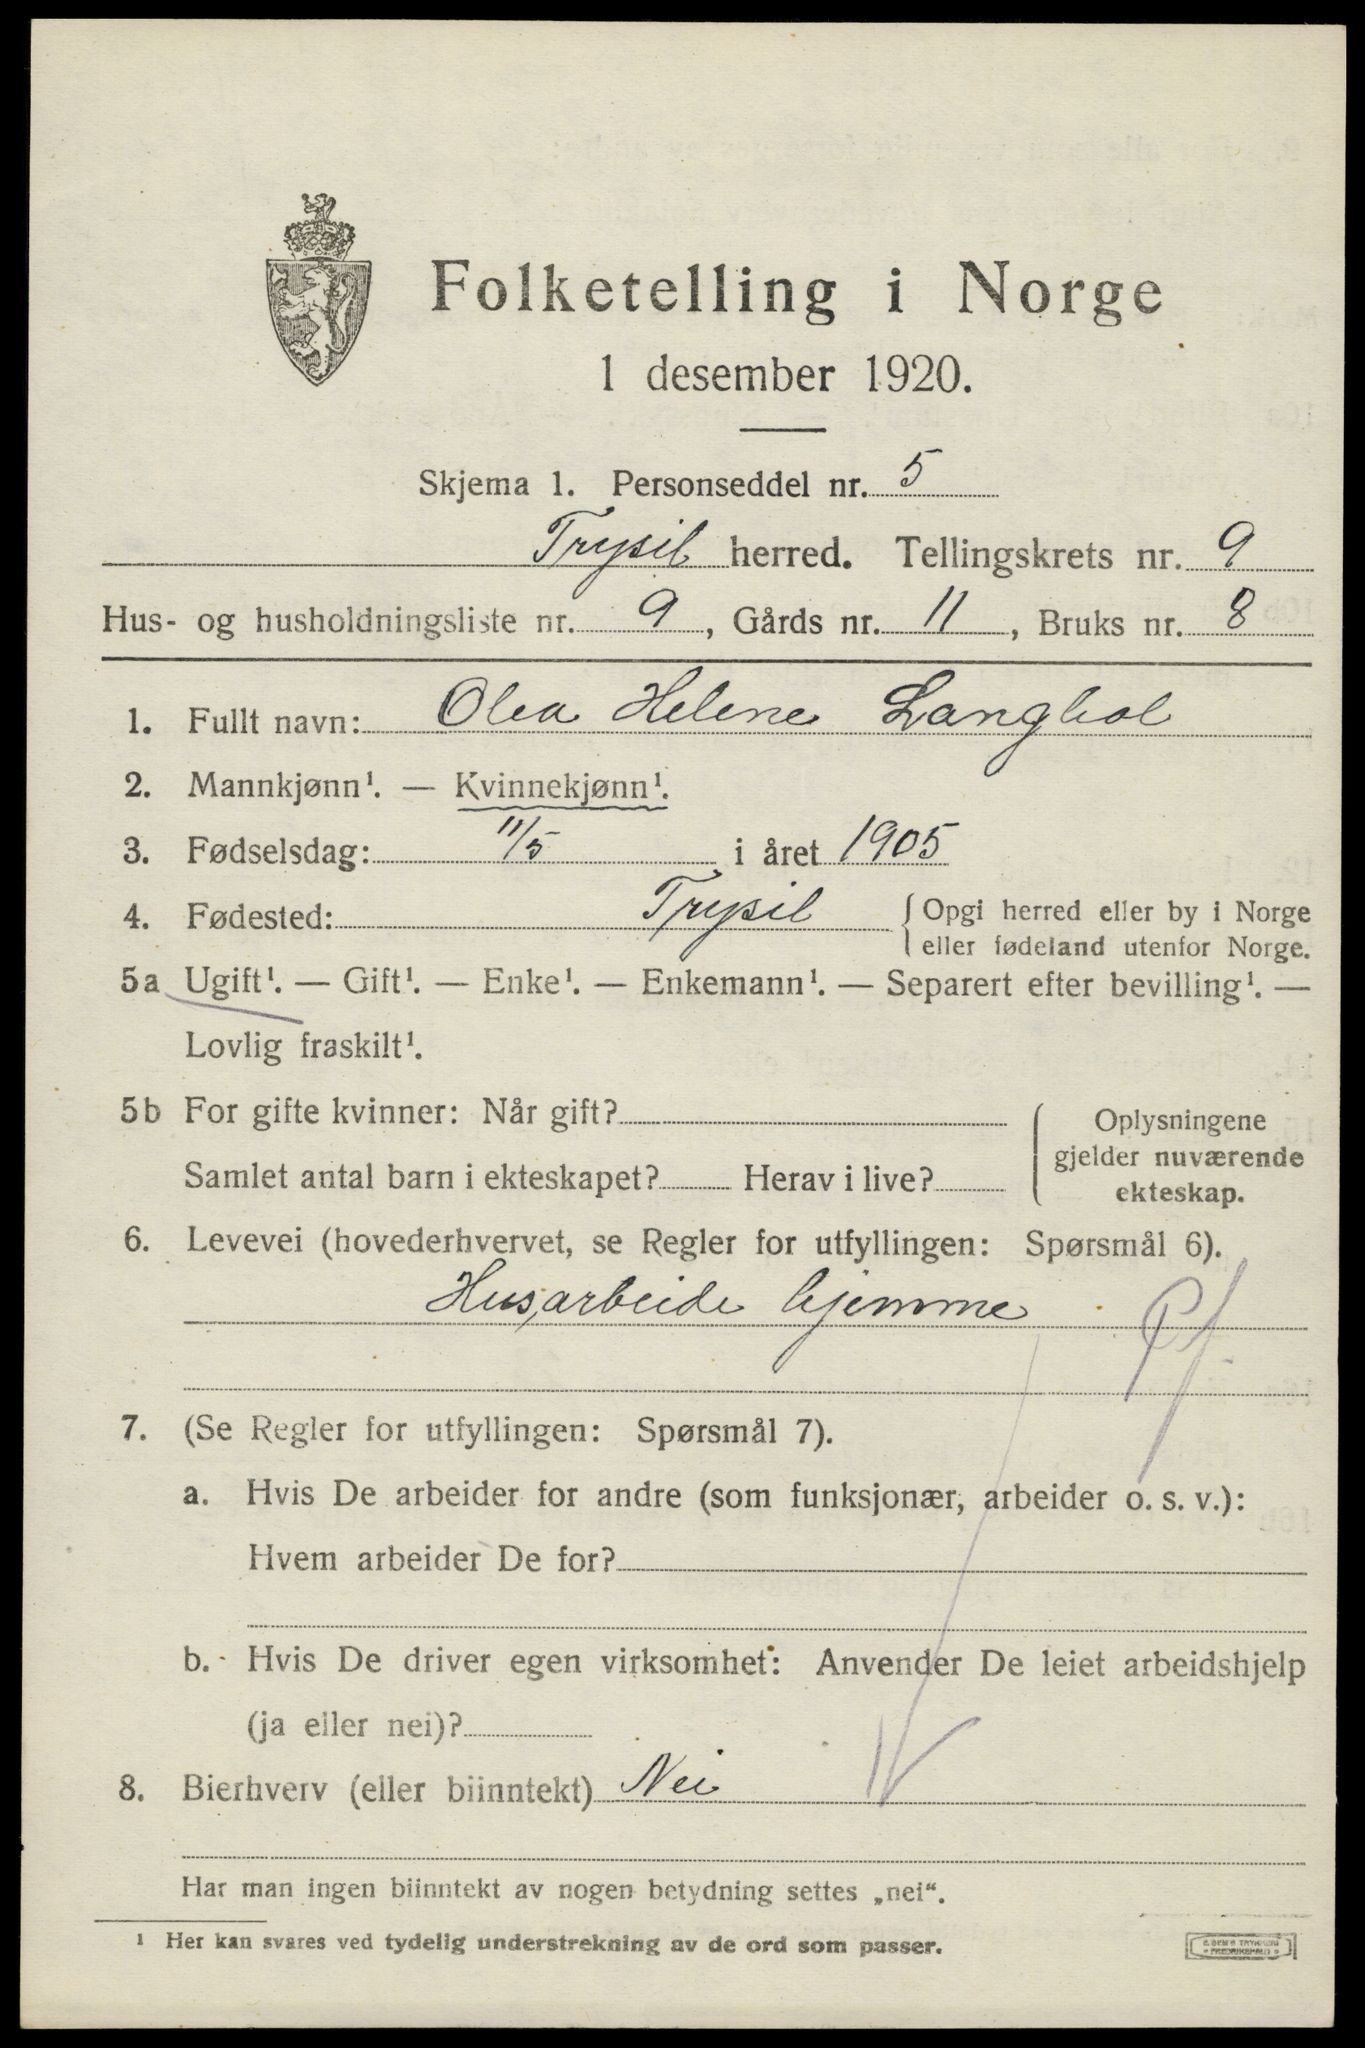 Folketelling i Norge
1 desember 1920.
Skjema 1. Personseddel nr. 5
Trysil herred. Tellingskrets nr. 9
Hus- og husholdningsliste nr. 9, Gårds nr. 11, Bruks nr. 8
1. Fullt navn: Olea Helene Langhol
2. Mannkjønn¹. — Kvinnekjønn¹.
3. Fødselsdag: 11/5 i året 1905
4. Fødested: Trysil { Opgi herred eller by i Norge
eller fødeland utenfor Norge.
5a Ugift¹. — Gift¹. — Enke¹. — Enkemann¹. — Separert efter bevilling¹. —
Lovlig fraskilt¹.
5b For gifte kvinner: Når gift?
Oplysningene
gjelder nuværende
ekteskap.
Samlet antal barn i ekteskapet? Herav i live?
6. Levevei (hovederhvervet, se Regler for utfyllingen: Spørsmål 6).
Husarbeide hjemme
7. (Se Regler for utfyllingen: Spørsmål 7).
a. Hvis De arbeider for andre (som funksjonær, arbeider o. s. v.):
Hvem arbeider De for?
b. Hvis De driver egen virksomhet: Anvender De leiet arbeidshjelp
(ja eller nei)?
8. Bierhverv (eller biinntekt) Nei
Har man ingen biinntekt av nogen betydning settes „nei“.
¹ Her kan svares ved tydelig understrekning av de ord som passer.